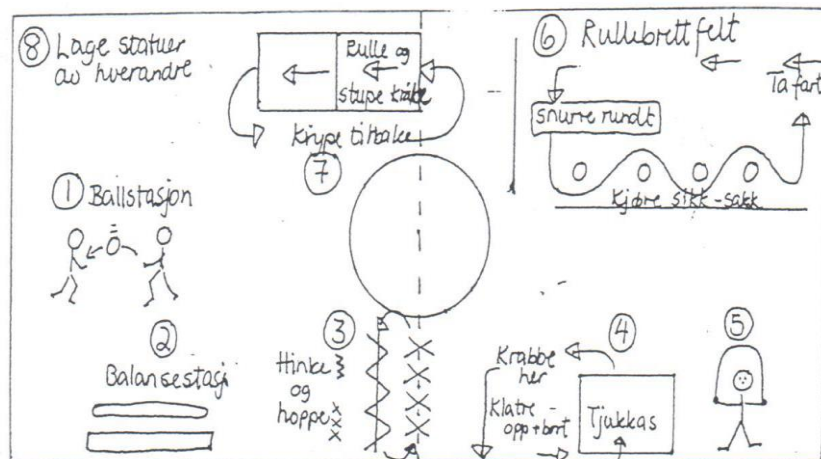 8 Lage statuer
av hverandre
Rulle og
stupe kråke
Krype tilbake
7
6 Rullebrettfelt
Ta fart
snurre rundt
Kjøre sikk-sakk
1 Ballstasjon
2
Balansestasj
3
Hinke
og
hoppe
4
Krabbe
her
Klatre -
opp + bort
Tjukkas
5